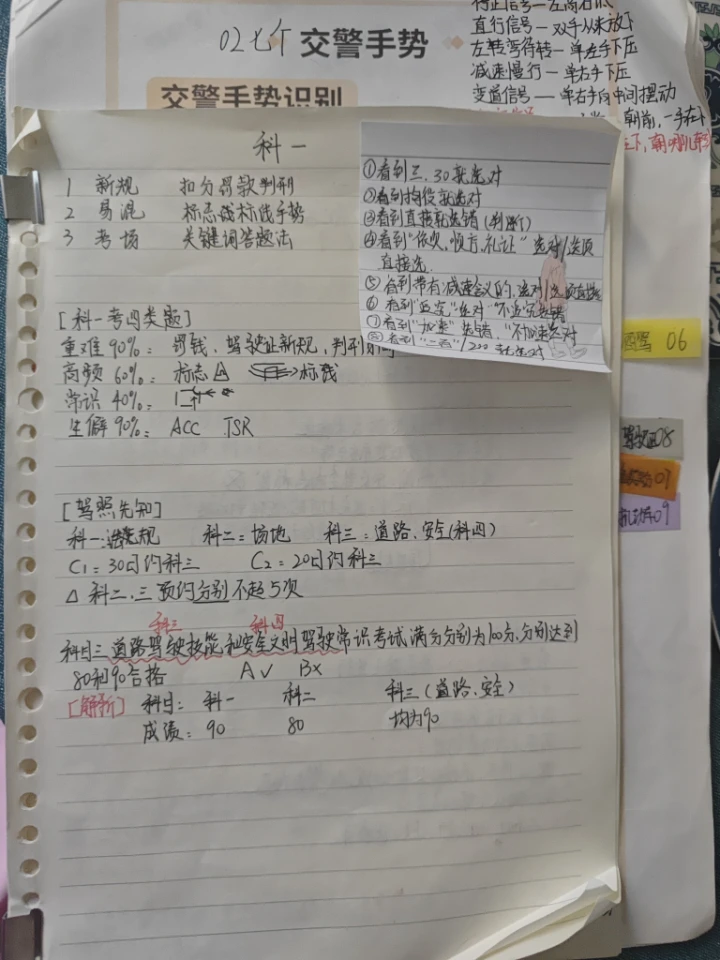 02七个 交警手势
交警手势识别
停止信号—左高右低
直行信号—双手从未放下
左转弯待转—单左手下压
减速慢行—单右手下压
变道信号—单右手向中间摆动
朝前,一手在下
科一
1 新规 扣分罚款判刑
2 易混 标志线标线手势
3 考场 关键词答题法
①看到三、30就选对
②看到拘役就选对
③看到直接就选错(判断)
④看到"依次,顺序,礼让"选对/选项
直接选.
⑤看到带有减速含义的,选对/选项直接选
⑥看到
⑦看到"加速"选错,
⑧看到 /200 就选对
[科一考四类题]
重难90%: 罚钱、驾驶证新规,判刑
高频60%: 标志 标线
常识40%:
生僻90%: ACC TSR
[驾照先知]
科一:法规 科二=场地 科三:道路、安全(科四)
C1=30日约科三 C2=20日约科三
△ 科二、三预约分别不超5次
科三 科四
科目三道路驾驶技能和安全文明驾驶常识考试满分分别为100分,分别达到
80和90合格 A√ B×
[解析] 科目: 科一 科二 科三(道路、安全)
成绩: 90 80 均为90
酒驾 06
驾驶证08
07
09